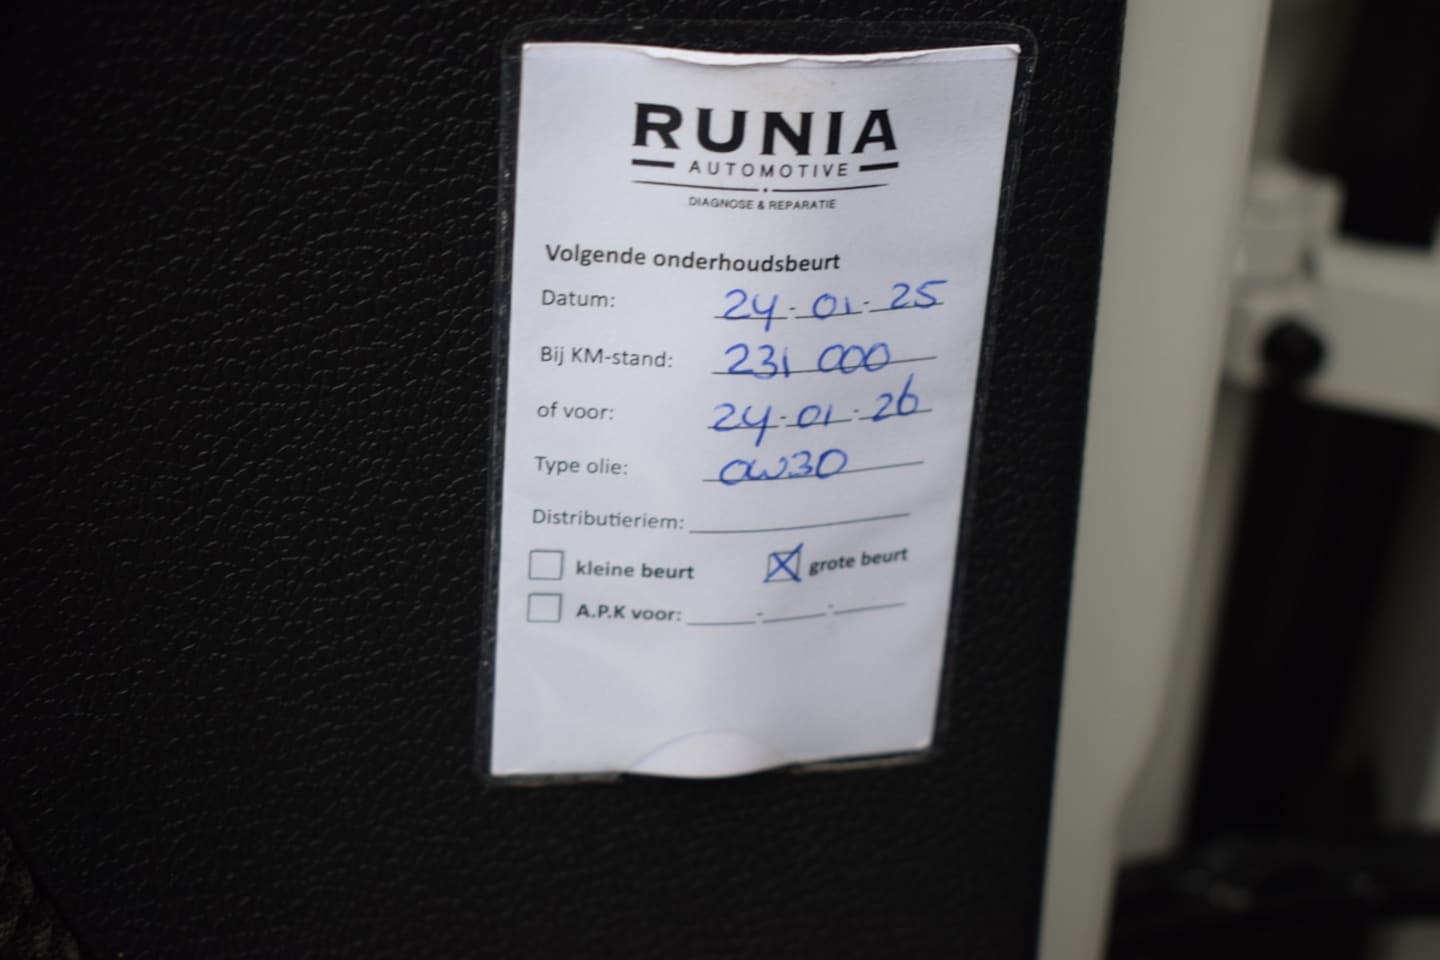 RUNIA
AUTOMOTIVE
DIAGNOSE & REPARATIE
Volgende onderhoudsbeurt
Datum: 24-01-25
Bij KM-stand: 231 000
of voor: 24-01-26
Type olie: 0W30
Distributieriem:
kleine beurt grote beurt
A.P.K voor: - -